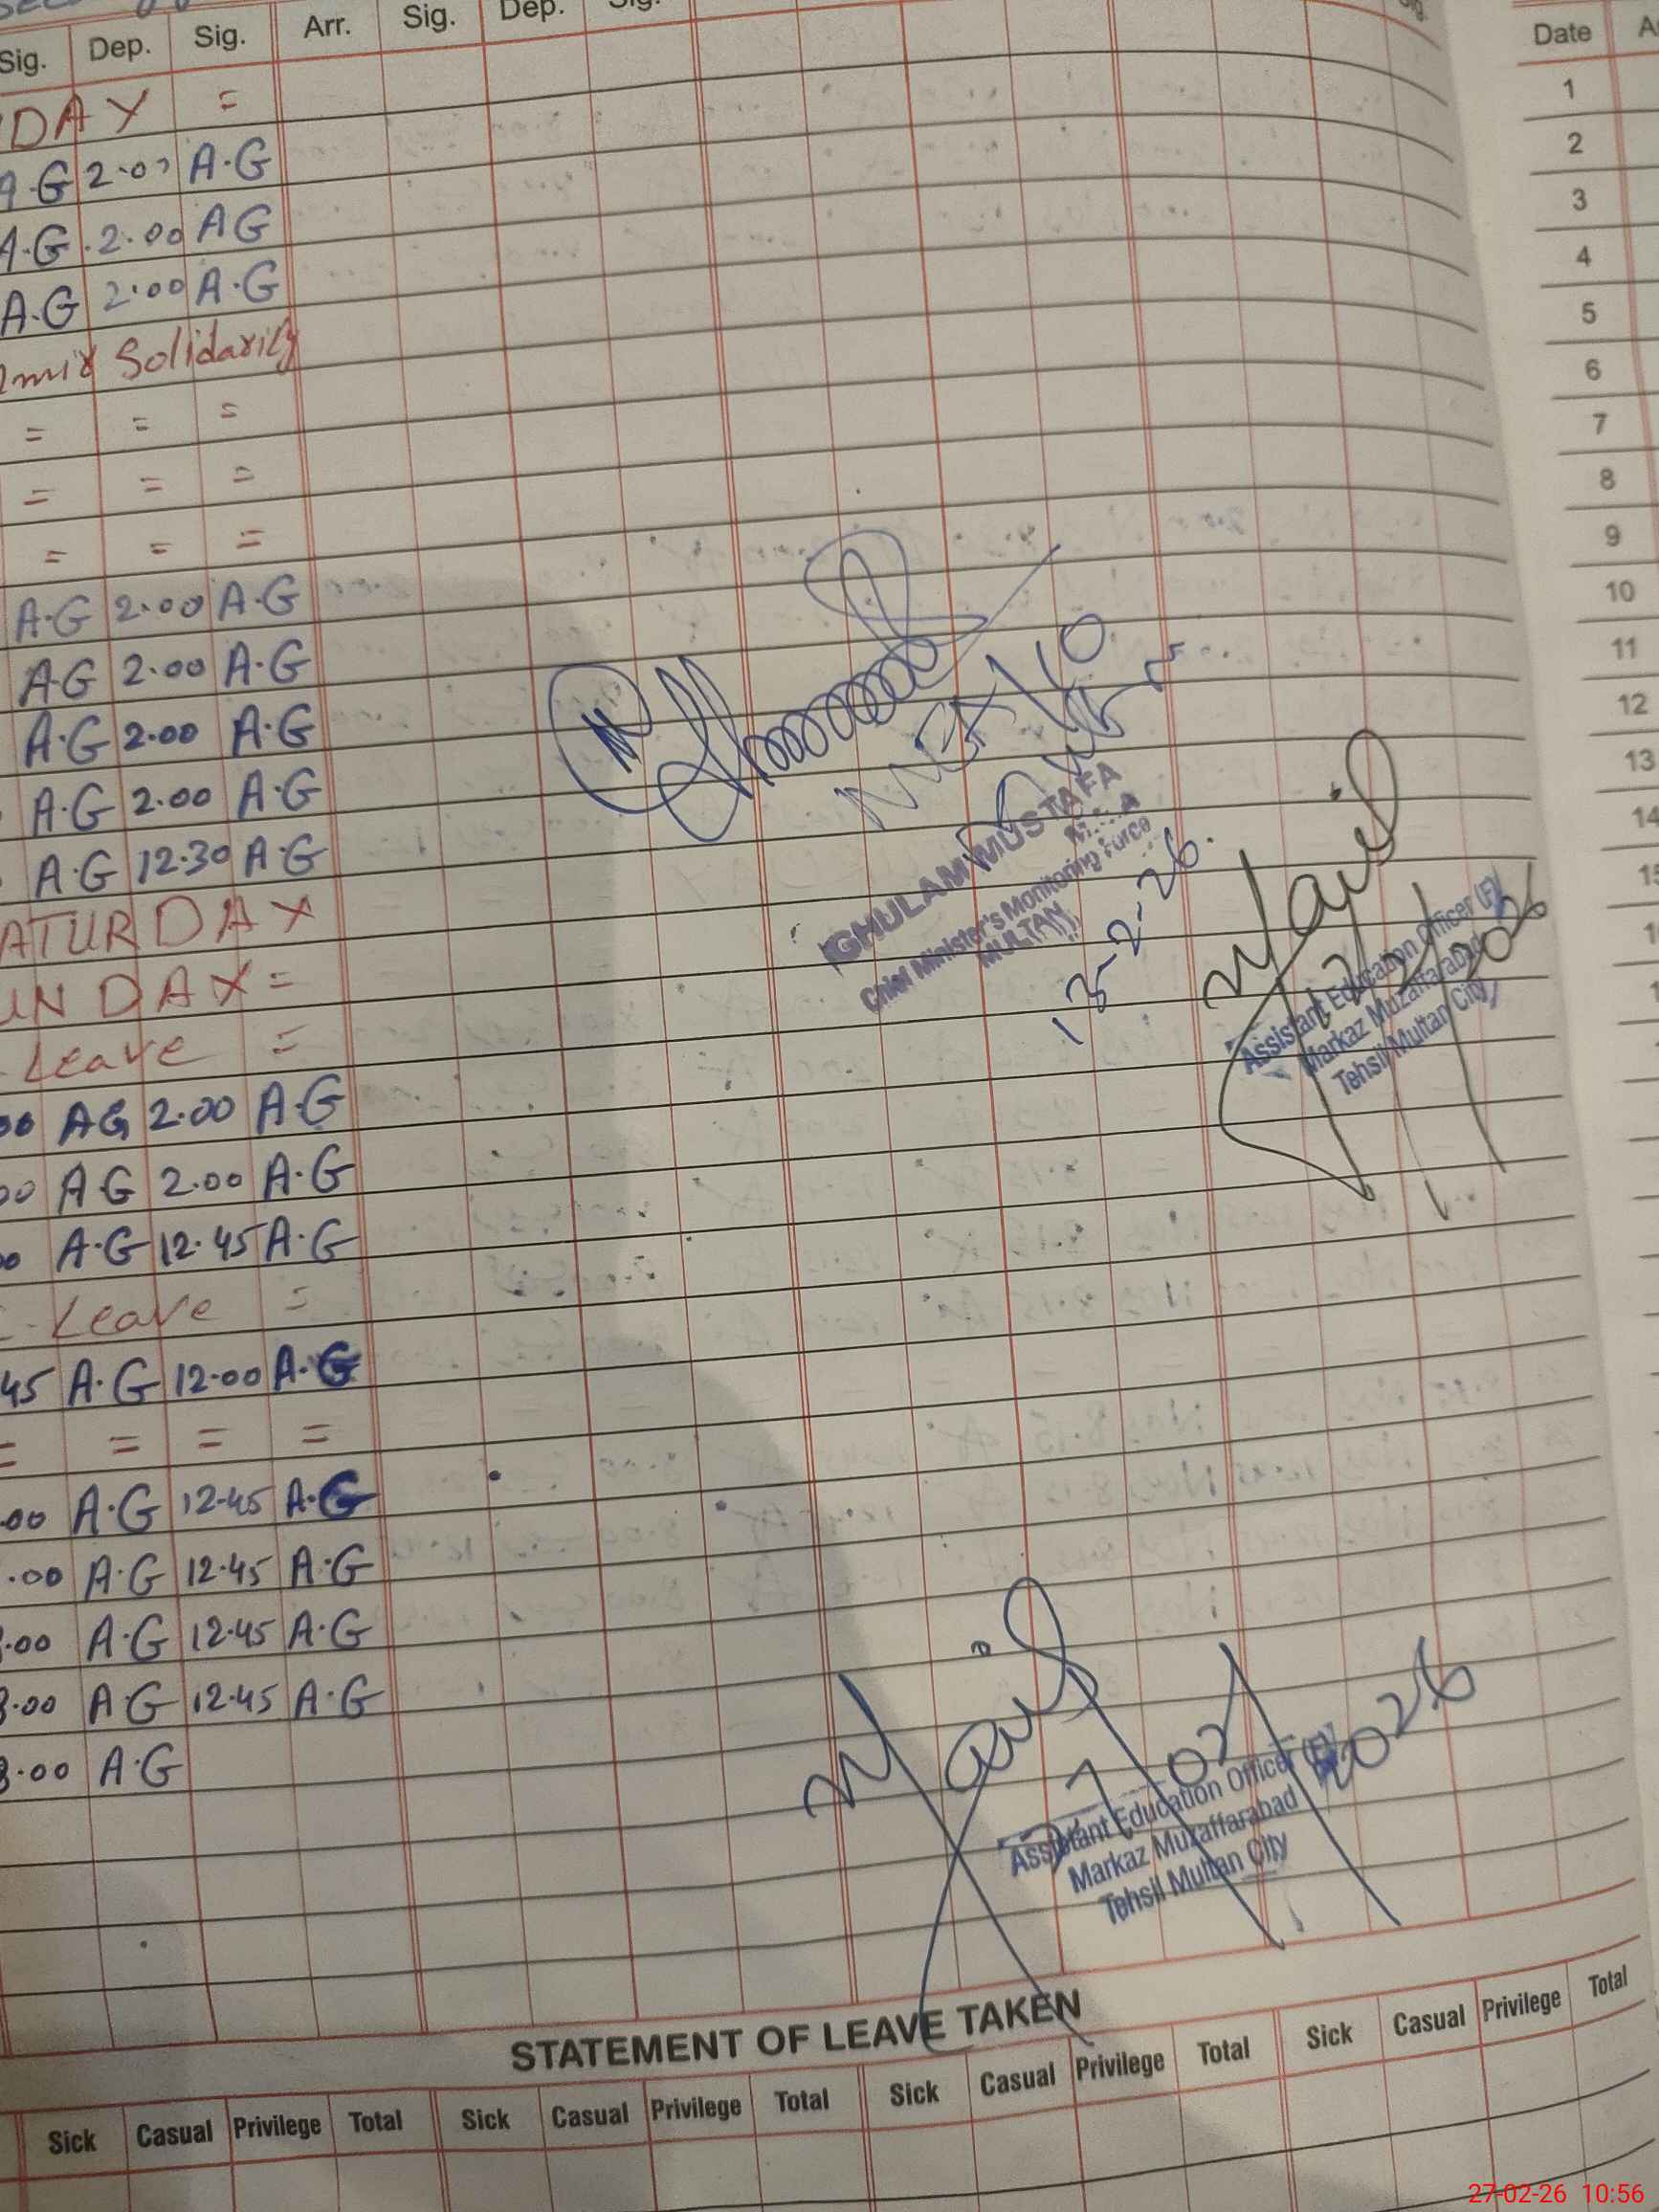 Sig. Dep. Sig. Arr. Sig. Dep. Sig.
DAY =
A.G 2.00 A.G
A.G. 2.00 AG
A.G 2.00 A.G
Solidarity
= = =
= = =
= = =
A.G 2.00 A.G
A.G 2.00 A.G
A.G 2.00 A.G
A.G 2.00 A.G
A.G 12.30 A.G
ATURDAY
UNDAY =
Leave =
00 AG 2.00 A.G
00 A.G 2.00 A.G
00 A.G 12.45 A.G
Leave =
45 A.G 12.00 A.G
= = = =
.00 A.G 12.45 A.G
.00 A.G 12.45 A.G
8.00 A.G 12.45 A.G
8.00 A.G 12.45 A.G
8.00 A.G
GHULAM MUSTAFA
Chief Minister's Monitoring Force
MULTAN
13-2-26.
Assistant Education Officer (F)
Markaz Muzaffarabad
Tehsil Multan City
27/02/2026
Assistant Education Officer (F)
Markaz Muzaffarabad
Tehsil Multan City
STATEMENT OF LEAVE TAKEN
Sick Casual Privilege Total Sick Casual Privilege Total Sick Casual Privilege Total Sick Casual Privilege Total
Date
1
2
3
4
5
6
7
8
9
10
11
12
13
14
27-02-26 10:56